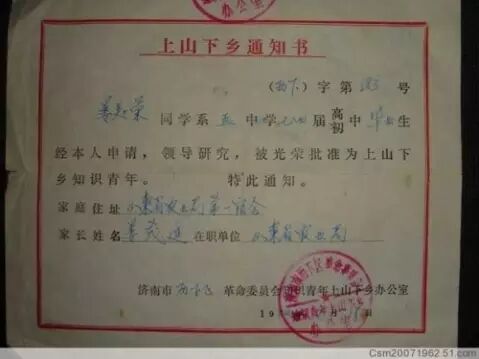 办公室
上山下乡通知书
(历下)字第 号
姜 荣 同学系 五 中学七 届高初中毕业生
经本人申请，领导研究，被光荣批准为上山下
乡知识青年。 特此通知。
家庭住址 山东省农业局第一宿舍
家长姓名 姜茂 在职单位 山东省农业局
济南市 历下区 革命委员会知识青年上山下乡办公室
19
Csm20071962.51.com